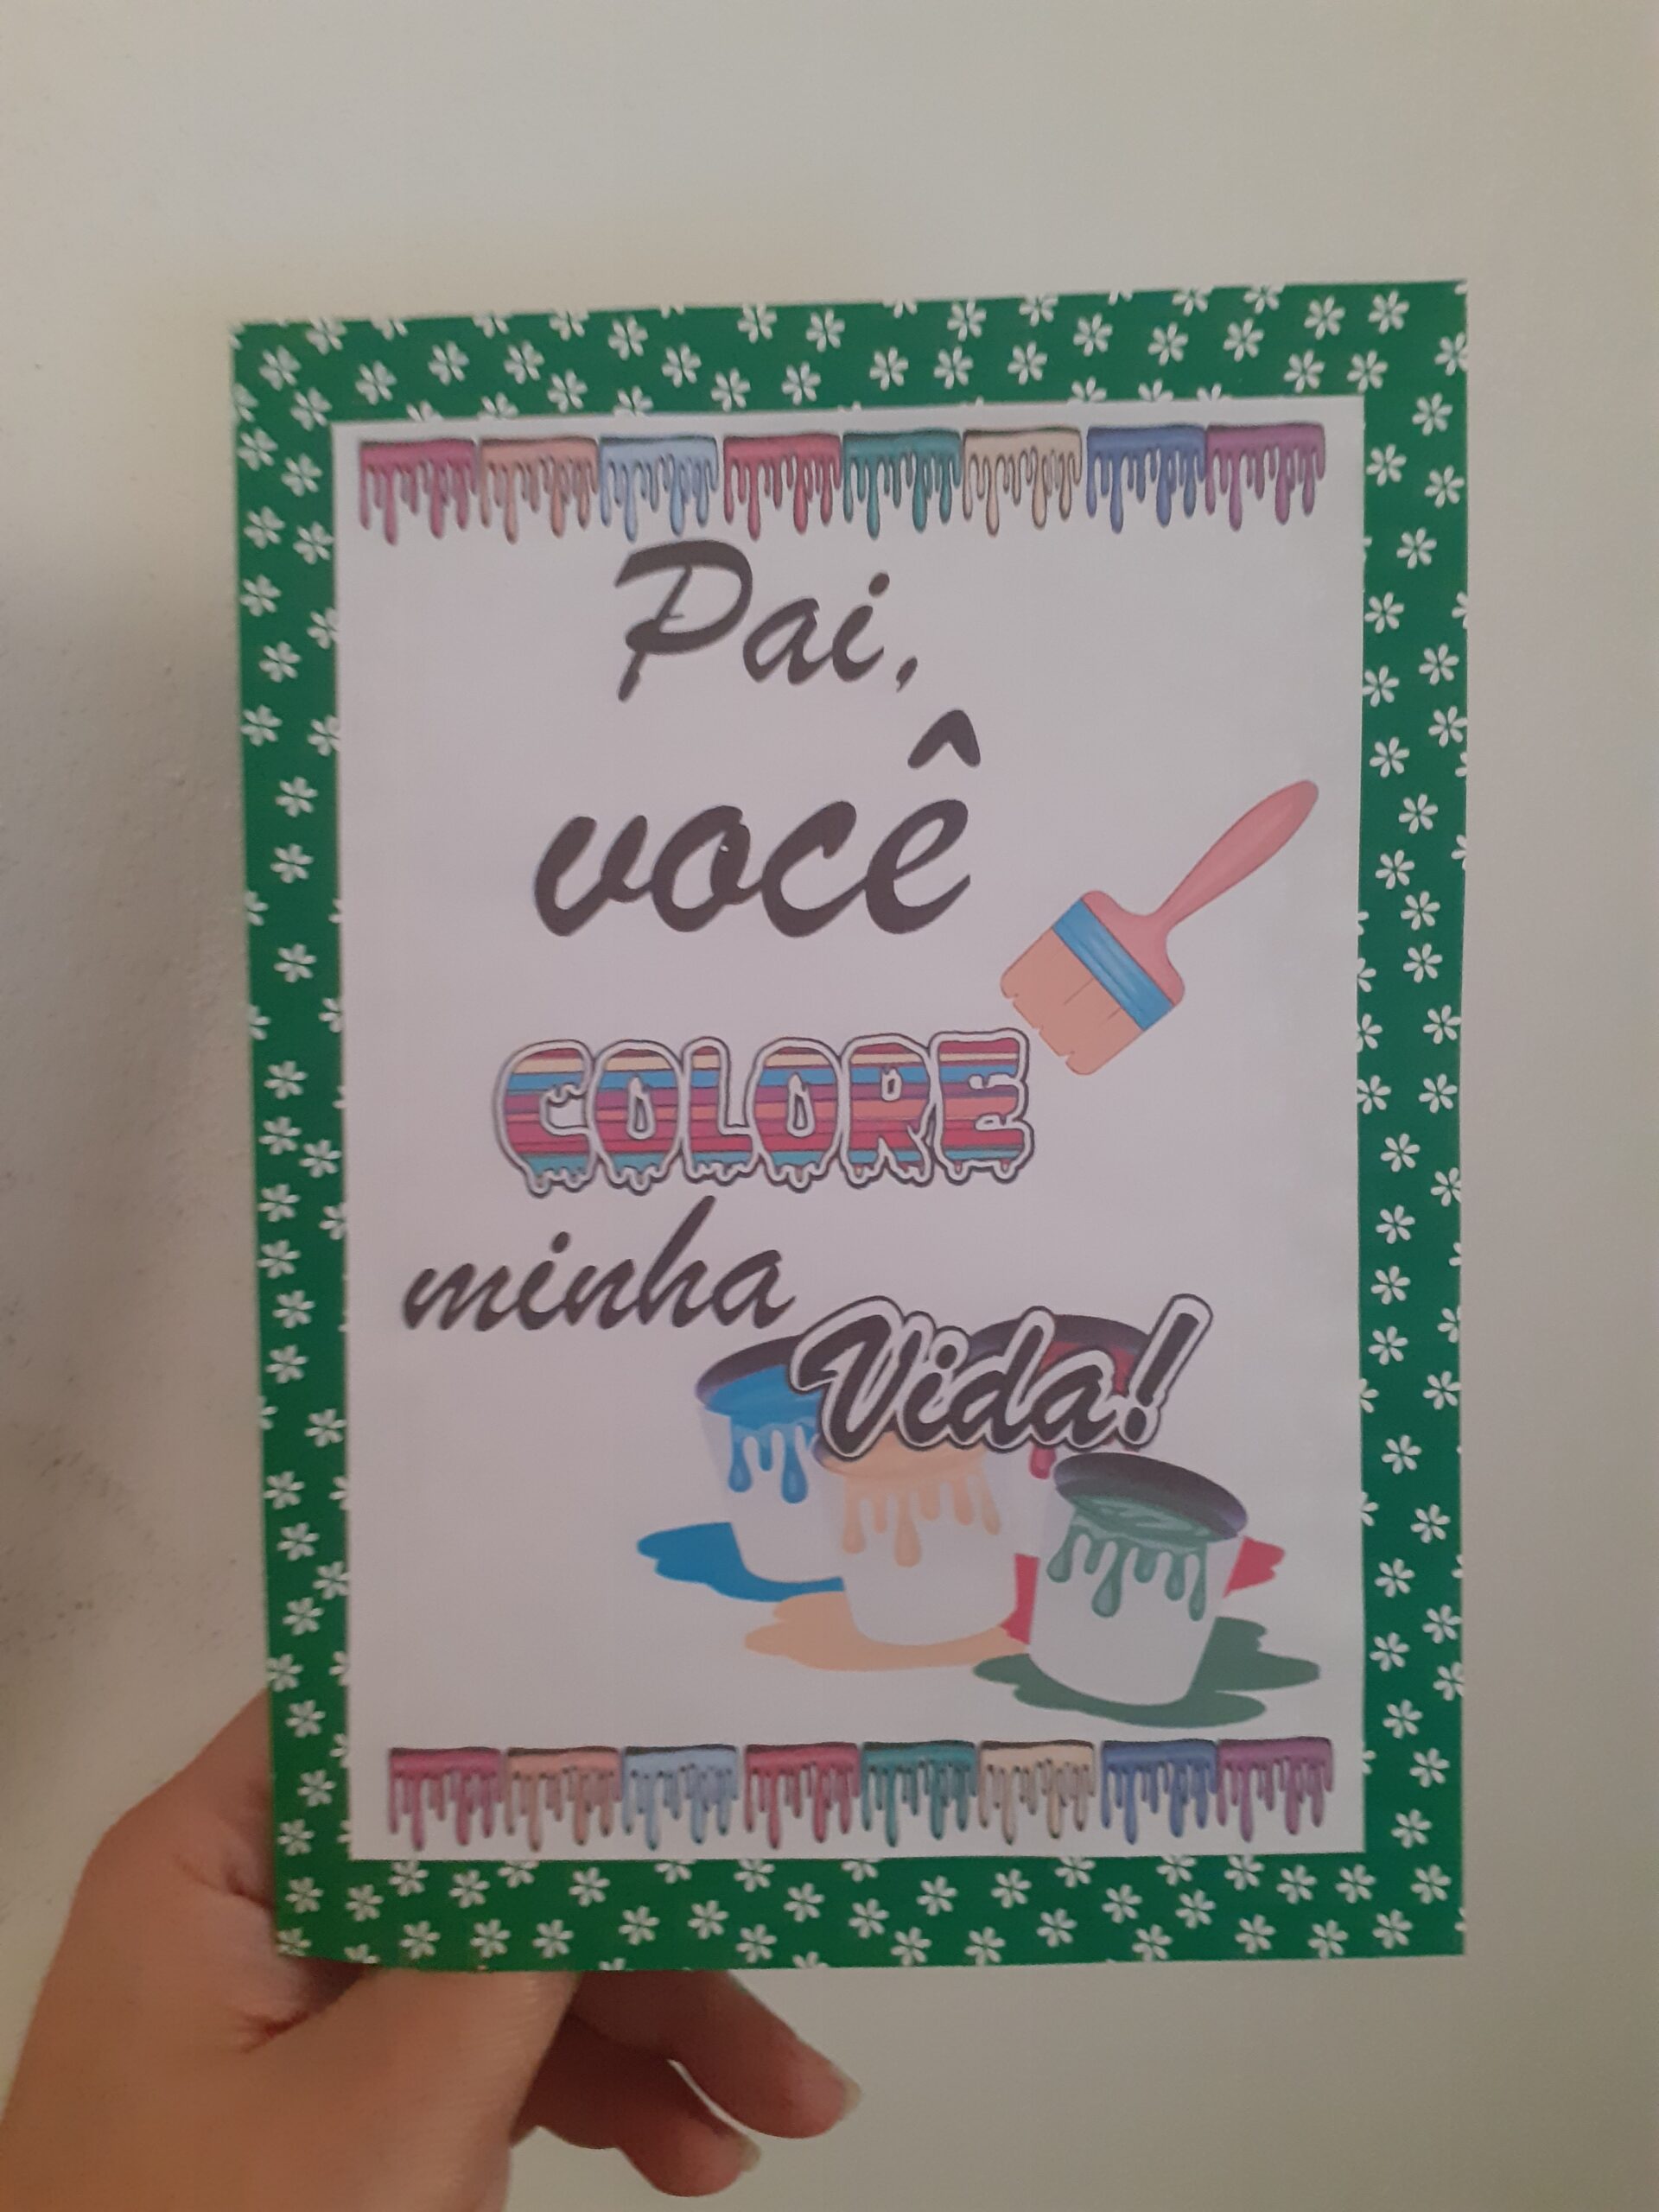 Pai,
você
COLORE
minha
Vida!